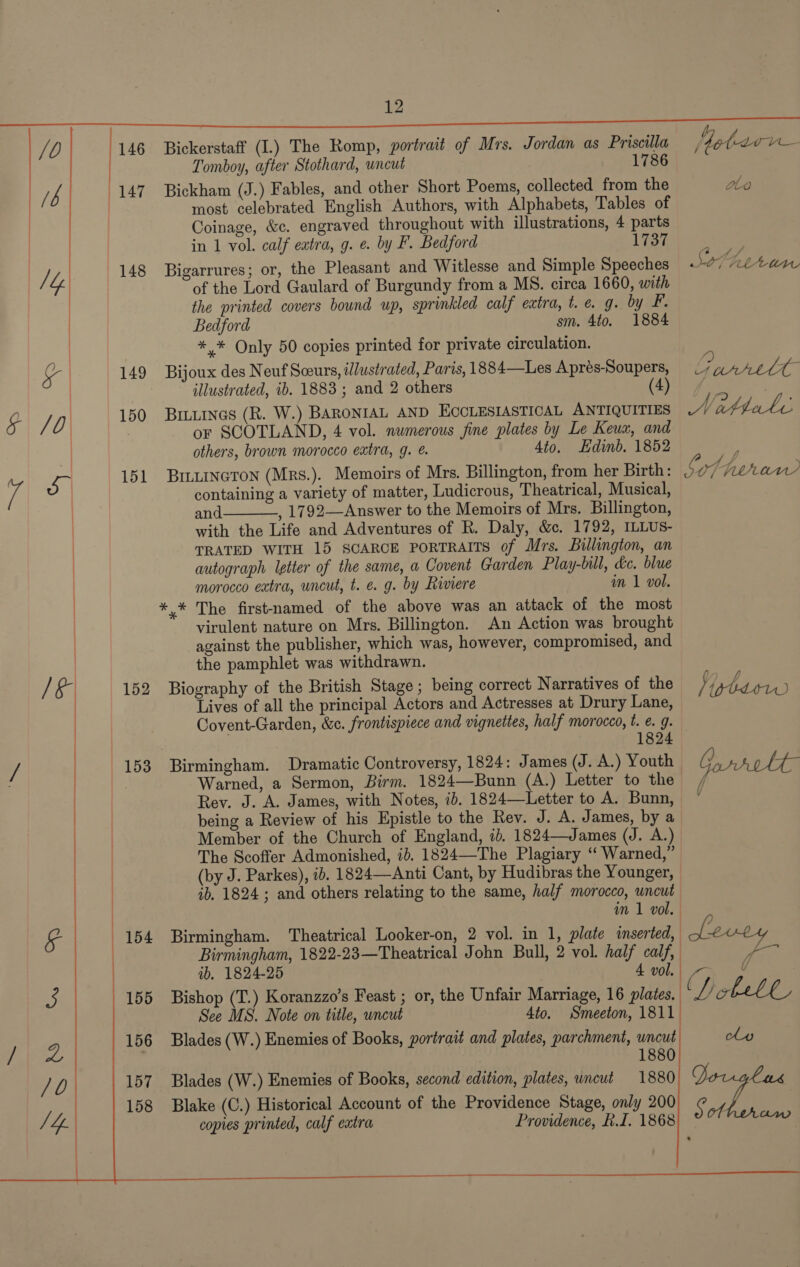 12
/10 146 Bickerstaff (I.) The Romp, portrait of Mrs. Jordan as Priscilla
Tomboy, after Stothard, uncut 1786
/6 147 Bickham (J.) Fables, and other Short Poems, collected from the do
most celebrated English Authors, with Alphabets, Tables of
Coinage, &c. engraved throughout with illustrations, 4 parts
in 1 vol. calf extra, g. e. by F. Bedford 1737
/4 148 Bigarrures; or, the Pleasant and Witlesse and Simple Speeches Sotheran
of the Lord Gaulard of Burgundy from a MS. circa 1660, with
the printed covers bound up, sprinkled calf extra, t. e. g. by F.
Bedford sm. 4to. 1884
*** Only 50 copies printed for private circulation.
8 149 Bijoux des Neuf Sœurs, illustrated, Paris, 1884—Les Aprés-Soupers, Garrett
illustrated, ib. 1883; and 2 others (4)
8 /10 150 BILLINGS (R. W.) BARONIAL AND ECCLESIASTICAL ANTIQUITIES Nattali
OF SCOTLAND, 4 vol. numerous fine plates by Le Keux, and
others, brown morocco extra, g. e. 4to. Edinb. 1852
7 5 151 BILLINGTON (MRS.). Memoirs of Mrs. Billington, from her Birth: Sotheran
containing a variety of matter, Ludicrous, Theatrical, Musical,
and———, 1792—Answer to the Memoirs of Mrs. Billington,
with the Life and Adventures of R. Daly, &c. 1792, ILLUS-
TRATED WITH 15 SCARCE PORTRAITS of Mrs. Billington, an
autograph letter of the same, a Covent Garden Play-bill, &c. blue
morocco extra, uncut, t. e. g. by Riviere in 1 vol.
*** The first-named of the above was an attack of the most
virulent nature on Mrs. Billington. An Action was brought
against the publisher, which was, however, compromised, and
the pamphlet was withdrawn.
/8 152 Biography of the British Stage; being correct Narratives of the
Lives of all the principal Actors and Actresses at Drury Lane,
Covent-Garden, &c. frontispiece and vignettes, half morocco, t. e. g.
1824
/ 153 Birmingham. Dramatic Controversy, 1824: James (J. A.) Youth Garrett
Warned, a Sermon, Birm. 1824—Bunn (A.) Letter to the
Rev. J. A. James, with Notes, ib. 1824—Letter to A. Bunn,
being a Review of his Epistle to the Rev. J. A. James, by a
Member of the Church of England, ib. 1824—James (J. A.)
The Scoffer Admonished, ib. 1824—The Plagiary “Warned,”
(by J. Parkes), ib. 1824—Anti Cant, by Hudibras the Younger,
ib. 1824; and others relating to the same, half morocco, uncut
in 1 vol.
8 154 Birmingham. Theatrical Looker-on, 2 vol. in 1, plate inserted, Levey
Birmingham, 1822-23—Theatrical John Bull, 2 vol. half calf,
ib. 1824-25 4 vol.
3 155 Bishop (T.) Koranzzo’s Feast; or, the Unfair Marriage, 16 plates. Dobell
See MS. Note on title, uncut 4to. Smeeton, 1811
/ 2 156 Blades (W.) Enemies of Books, portrait and plates, parchment, uncut do
1880
/10 157 Blades (W.) Enemies of Books, second edition, plates, uncut 1880 Douglas
/4 158 Blake (C.) Historical Account of the Providence Stage, only 200 Sotheran
copies printed, calf extra Providence, R.I. 1868